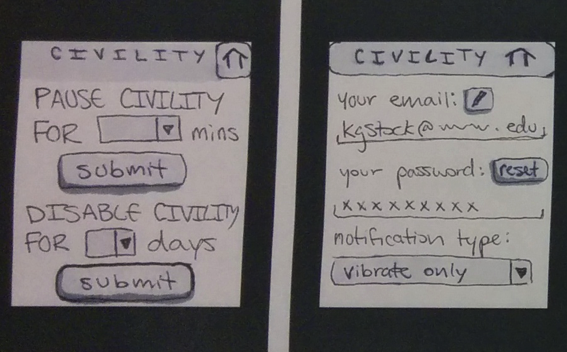 CIVILITY
PAUSE CIVILITY
FOR mins
submit
DISABLE CIVILITY
FOR days
submit
CIVILITY
your email:
your password: reset
xxxxxxxxx
notification type:
vibrate only